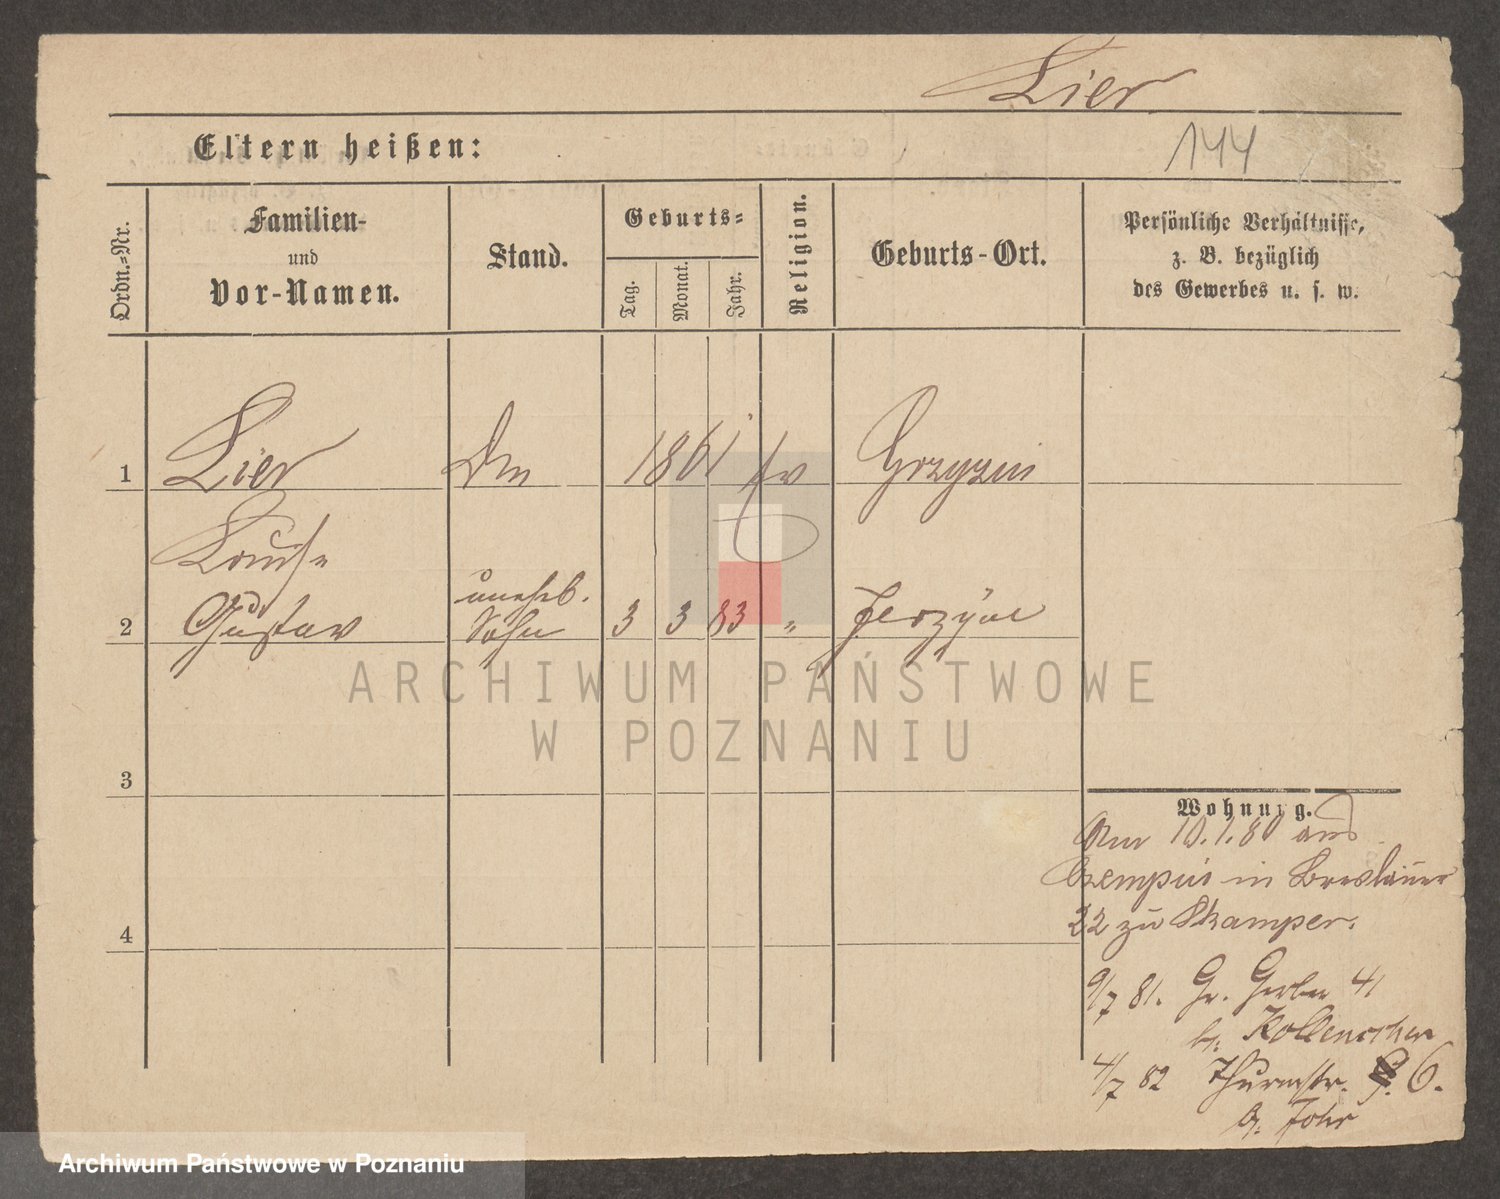 Lier
144
Eltern heißen:
Ordn.-Nr.
Familien-
und
Vor-Namen.
Stand.
Geburts-
Tag.
Monat.
Jahr.
Religion.
Geburts-Ort.
Persönliche Verhältnisse,
z. B. bezüglich
des Gewerbes u. s. w.
1
Lier
1861
ev
Louise
2
Gustav
unehel.
Sohn
3 3 83
"
Jerzyce
ARCHIWUM PAŃSTWOWE
W POZNANIU
3
Wohnung.
10.1.80 aus
Czempin in Breslauer
22 zu Skamper.
4
9/7 81. Gr. Gerber 41
b. Kollenscher
4/7 82 Thurmstr. 6.
b.
Archiwum Państwowe w Poznaniu